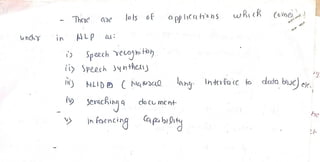 - There are lots of applications which comes
under in NLP as:
i) Speech recognition
ii) Speech synthesis
iii) NLIDB (Natural lang. Interface to data base) etc.
iv) seraching a document
v) inferencing Capability
-